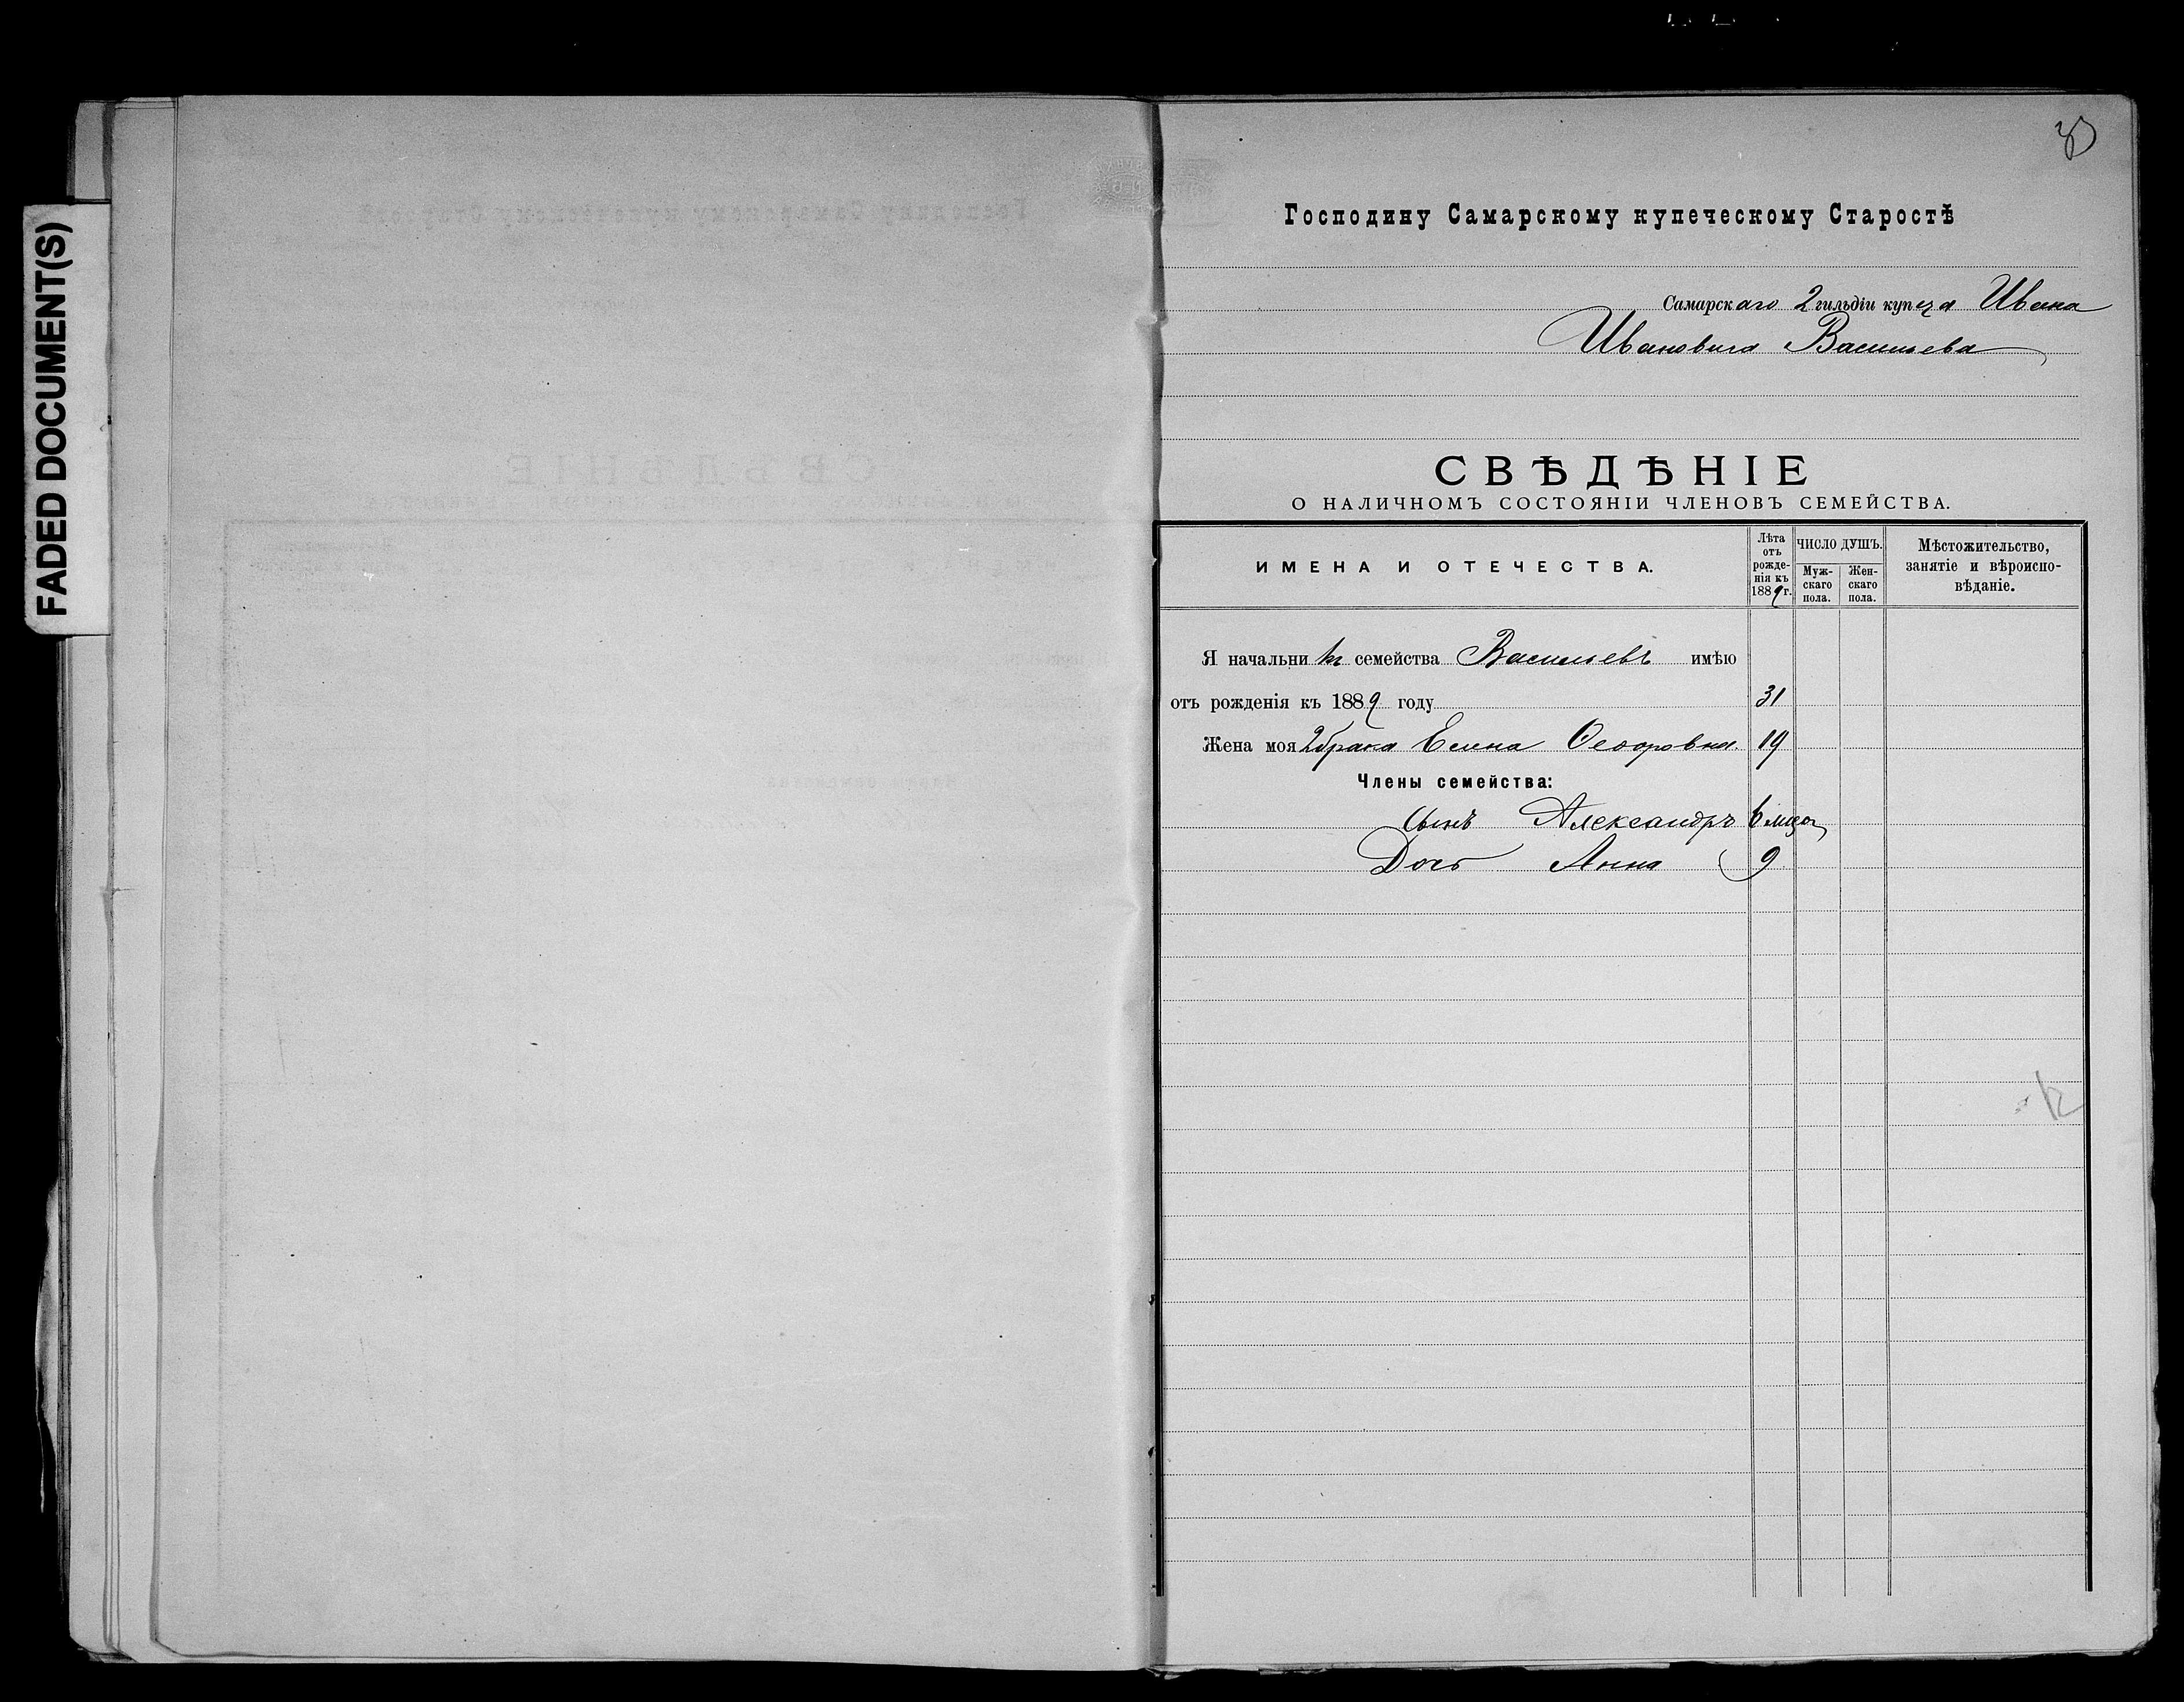 FADED DOCUMENT(S)
Господину Самарскому купеческому Старостѣ
Самарскаго 2 гильдіи купца Ивана
Ивановича Васильева
СВѢДѢНІЕ
О НАЛИЧНОМЪ СОСТОЯНІИ ЧЛЕНОВЪ СЕМЕЙСТВА.
ИМЕНА И ОТЕЧЕСТВА.
Лѣта отъ рожде-нія къ 1889 г.
ЧИСЛО ДУШЪ.
Муж-скаго пола.
Жен-скаго пола.
Мѣстожительство, занятіе и вѣроиспо-вѣданіе.
Я начальникъ семейства Васильевъ имѣю
отъ рожденія къ 1889 году 31
Жена моя 2 брака Елена Ѳеодоровна. 19
Члены семейства:
Сынъ Александръ 6 мѣсяц
Дочь Анна 9